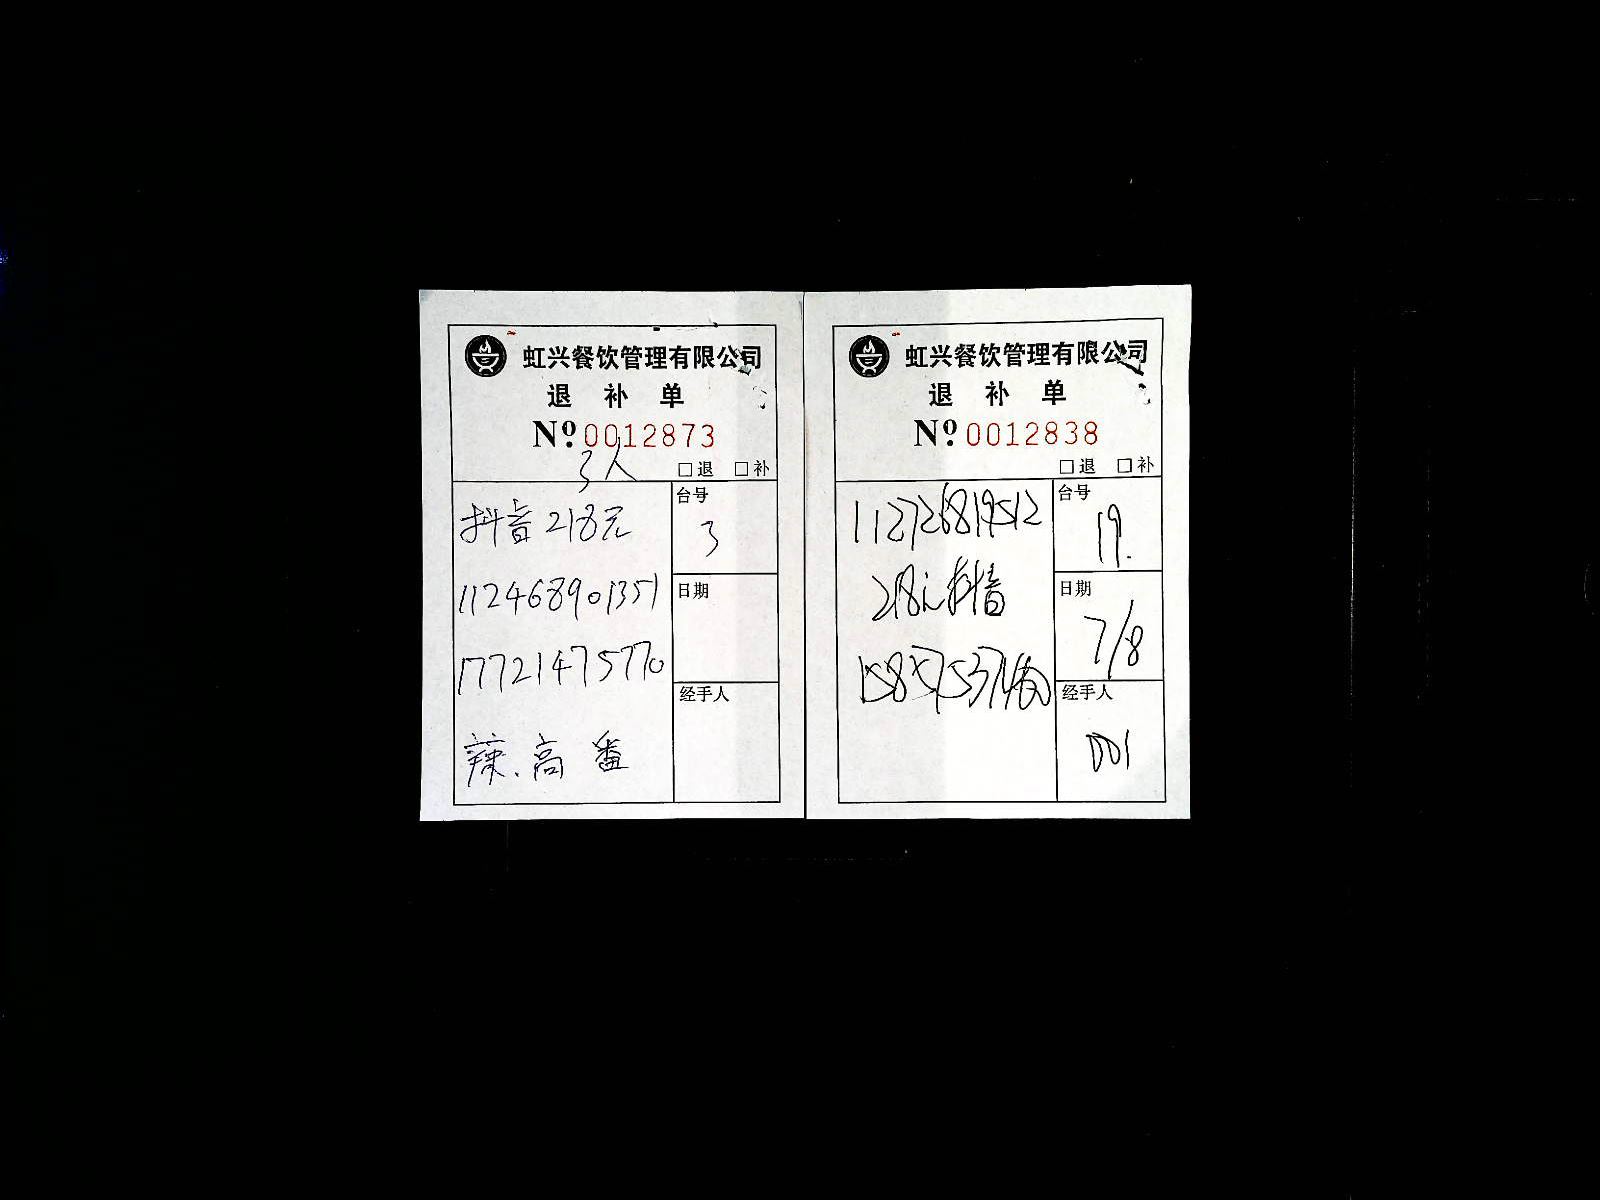 虹兴餐饮管理有限公司
退 补 单
Nº:0012873
3人
□退 □补
抖音218元
112468901351
17721475770
辣.高 番
台号
3
日期
经手人
虹兴餐饮管理有限公司
退 补 单
Nº:0012838
□退 □补
112726819512
218元抖音
台号
19.
日期
7/8
经手人
001